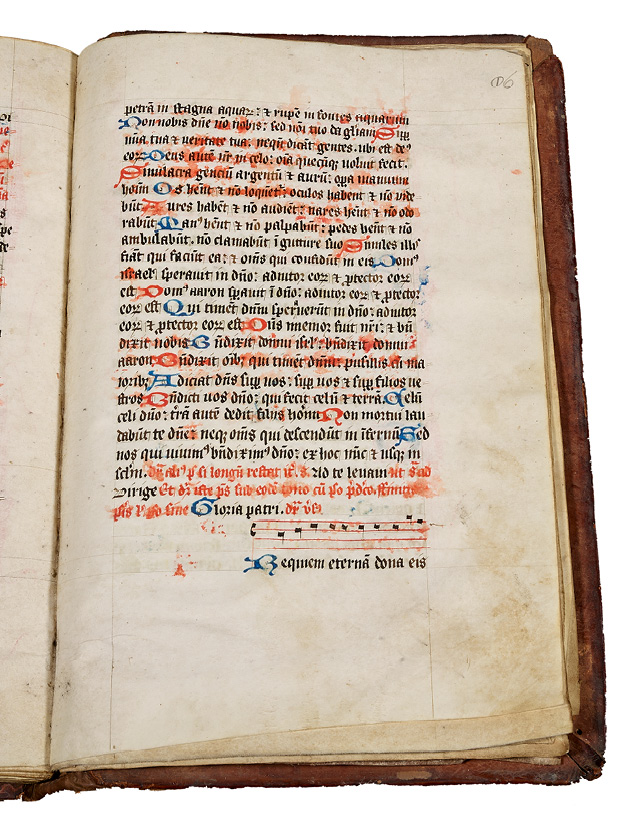 petrã in stagna aquaꝝ: ⁊ rupẽ in fontes aquarum
Non nobis dñe nõ nobis: sed nõi tuo da gliam Sup
mĩa tua ⁊ veritate tua: neqñ dicãt gentes. ubi est de⁹
eoꝝ Deus autẽ nr̃ in celo: oĩa quecũqꝫ voluit fecit.
Simulacra genciũ argentũ ⁊ aurũ: opa manuum
hoĩm Os hẽnt ⁊ nõ loquẽt: oculos habent ⁊ nõ vide
bũt Aures habẽt ⁊ nõ audiẽt: nares hẽnt ⁊ nõ odo
rabũt Man⁹ hẽnt ⁊ nõ palpabũt: pedes hẽnt ⁊ nõ
ambulabũt. nõ clamabũt ĩ gutture suo Similes illis
fiãt qui faciũt ea: ⁊ oms qui cõfidũt in eis Dom⁹
israel speravit in dño: adiutor eoꝝ ⁊ ptector eoꝝ
est Dom⁹ aaron spavit ĩ dño: adiutor eoꝝ ⁊ ptector
eoꝝ est Qui timẽt dñm speraverũt in dño: adiutor
eoꝝ ⁊ ptector eoꝝ est Dñs memor fuit nr̃i: ⁊ bñ
dixit nobis Bñdixit domui isrl: bñdixit domui
aaron Bñdixit oĩb⁹ qui timẽt dñm: pusillis cũ ma
iorib⁹ Adiciat dñs sup vos: sup vos ⁊ sup filios ve
stros Bñdicti vos dño: qui fecit celũ ⁊ terrã Celũ
celi dño: tr̃am autẽ dedit filijs hoĩm Non mortui lau
dabũt te dñe: neqꝫ om̃s qui descendũt in ĩfernũ Sed
nos qui vivim⁹ bñdixim⁹ dño: ex hoc nũc ⁊ usqꝫ in
sclm. Ad te levavi
Dirige
Gloria patri.
Requiem eternã dona eis